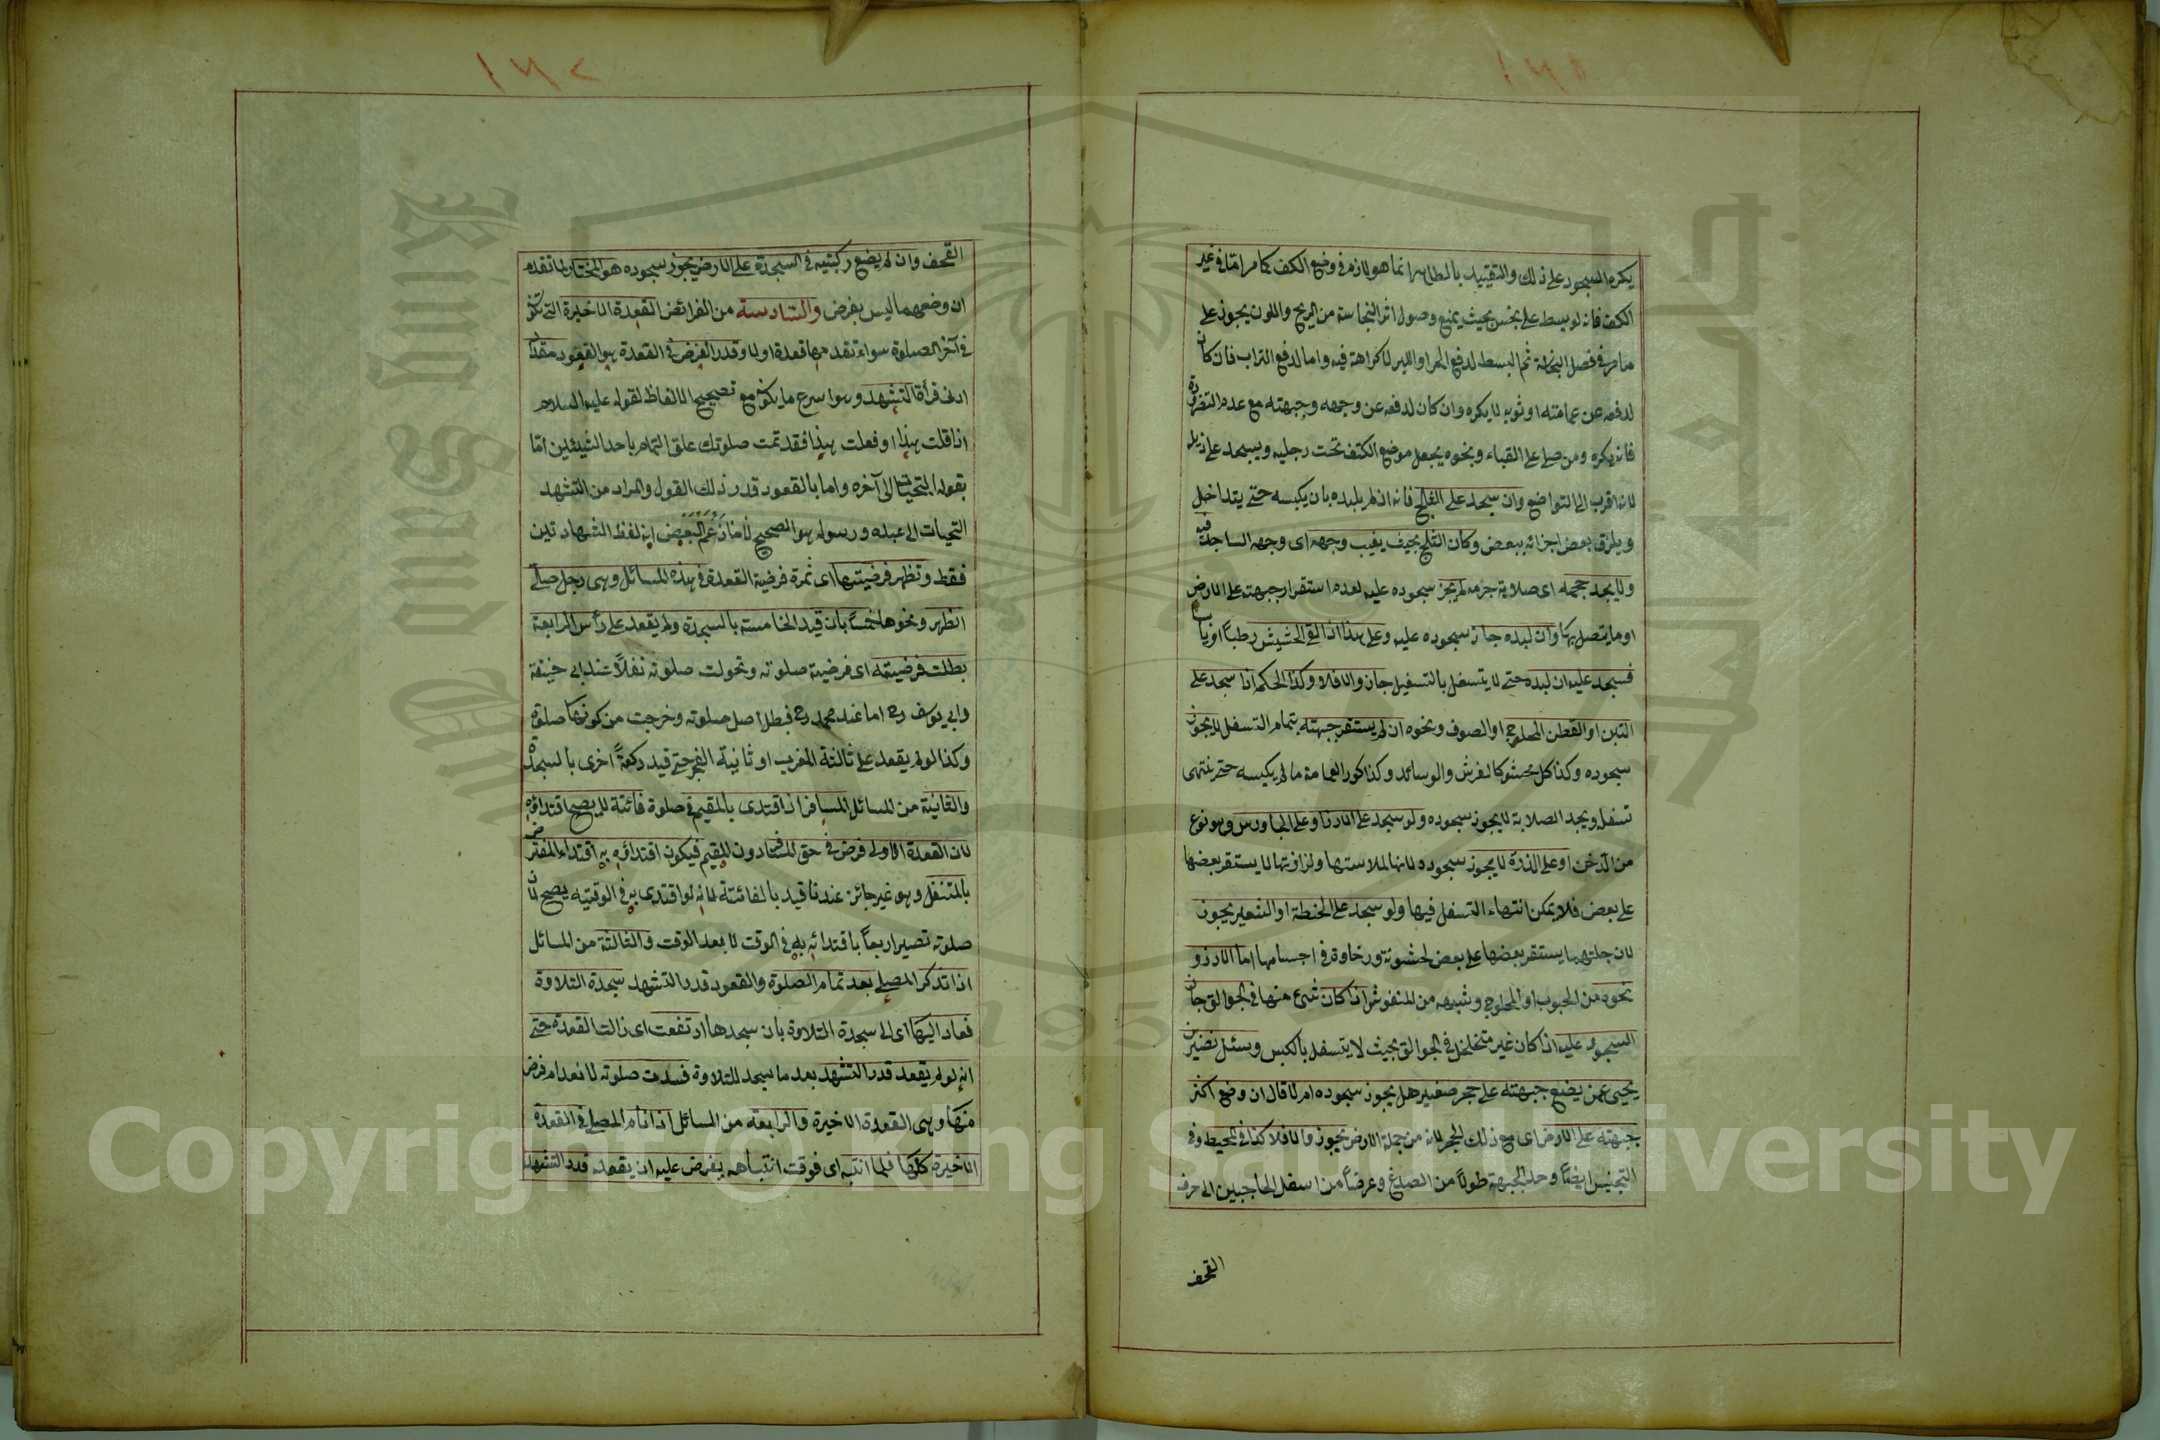 ١٦٥
يكره السجود على ذلك والتقييد بالطاهر انما هو لازم في وضع الكف كما مر اما في غير
الكف فانه لو بسط على نجس بحيث يمنع وصول اثر النجاسة من الريح واللون يجوز على
ما مر في فصل النجاسة ثم البسط لدفع الحر او البرد لا كراهة فيه واما لدفع التراب فان كان
لدفعه عن عمامته او ثوبه لا يكره وان كان لدفعه عن وجهه وجبهته مع عدم التضرر
فانه يكره ومن صلى على القباء ونحوه يجعل موضع الكتف تحت رجليه ويسجد على ذيله
لانه اقرب الى التواضع وان سجد على الثلج فانه ان لم يلبده بان يكبسه حتى يتداخل
ويلزق بعض اجزائه ببعض وكان الثلج بحيث يغيب وجهه اى وجه الساجد فيه
ولا يجد حجمه اى صلابة جرمه لم يجز سجوده عليه لعدم استقرار جبهته على الارض
او ما يتصل بها وان لبده جاز سجوده عليه وعلى هذا اذا القى الحشيش رطبا او يابسا
فسجد عليه ان لبده حتى لا يتسفل بالتسفيل جاز والا فلا وكذا الحكم اذا سجد على
التبن او القطن المحلوج او الصوف ونحوه ان لم يستقر جبهته بتمام التسفل لا يجوز
سجوده وكذا كل محشو كالفرش والوسائد وكذا كور العمامة ما لم يكبسه حتى ينتهى
تسفله ويجد الصلابة لا يجوز سجوده ولو سجد على الارز او على الجاورس وهو نوع
من الدخن او على الذرة لا يجوز سجوده لانها لملاستها ولزازتها لا يستقر بعضها
على بعض فلا يمكن انتهاء التسفل فيها ولو سجد على الحنطة او الشعير يجوز
لان حباتهما يستقر بعضها على بعض لخشونة ورخاوة في اجسامها اما الارز و
نحوه من الحبوب او المحلوج وشبهه من المنفوش اذا كان شئ منها في الجوالق جاز
السجود عليه اذا كان غير متخلخل في الجوالق بحيث لا يتسفل بالكبس وسئل نصير بن
يحيى عمن يضع جبهته على حجر صغير هل يجوز سجوده ام لا قال ان وضع اكثر
جبهته على الارض اى مع ذلك الحجر لانه من جملة الارض يجوز والا فلا كذا في المحيط وفي
التجنيس ايضا وحد الجبهة طولا من الصدغ وعرضا من اسفل الحاجبين الى حرف
القحف
القحف وان لم يضع ركبتيه في السجدة على الارض يجوز سجوده هو المختار لما تقدم
ان وضعهما ليس بفرض والسادسة من الفرائض القعدة الاخيرة التى تكون
في آخر الصلوة سواء تقدمها قعدة او لا وقدر الفرض في القعدة هو القعود مقدار
ادنى قرأة التشهد وهو اسرع ما يكون مع تصحيح الالفاظ لقوله عليه السلام
اذا قلت هذا او فعلت هذا فقد تمت صلوتك علق التمام باحد الشيئين اما
بقوله التحيات الى آخره واما بالقعود قدر ذلك القول والمراد من التشهد
التحيات الى عبده ورسوله هو الصحيح لا ما زعم البعض انه لفظ الشهادتين
فقط وتظهر فرضيتها اى ثمرة فرضية القعدة في هذه المسائل وهى رجل صلى
الظهر ونحوها خمسا بان قيد الخامسة بالسجدة ولم يقعد على رأس الرابعة
بطلت فرضيته اى فرضية صلوته وتحولت صلوته نفلا عند ابي حنيفة
وابي يوسف رح اما عند محمد رح فبطل اصل صلوته وخرجت من كونها صلوة
وكذا لو لم يقعد على ثالثة المغرب او ثانية الفجر حتى قيد ركعة اخرى بالسجدة
والثانية من المسائل المسافر اذا اقتدى بالمقيم في صلوة فائتة لا يصح اقتداؤه
لان القعدة الاولى فرض في حق المسافر دون المقيم فيكون اقتداؤه به اقتداء المفترض
بالمتنفل وهو غير جائز عندنا قيد بالفائتة لانه لو اقتدى به في الوقتية يصح لان
صلوته تصير اربعا باقتدائه به في الوقت لا بعد الوقت والثالثة من المسائل
اذا تذكر المصلى بعد تمام الصلوة والقعود قدر التشهد سجدة التلاوة
فعاد اليها اى الى سجدة التلاوة بان سجدها ارتفعت اى زالت القعدة حتى
انه لو لم يقعد قدر التشهد بعد ما سجد للتلاوة فسدت صلوته لانعدام فرض
منها وهى القعدة الاخيرة والرابعة من المسائل اذا نام المصلى في القعدة
الاخيرة كلها فلما انتبه اى فوقت انتباهه يفرض عليه ان يقعد قدر التشهد
Copyright © King Saud University
King Saud University
1957